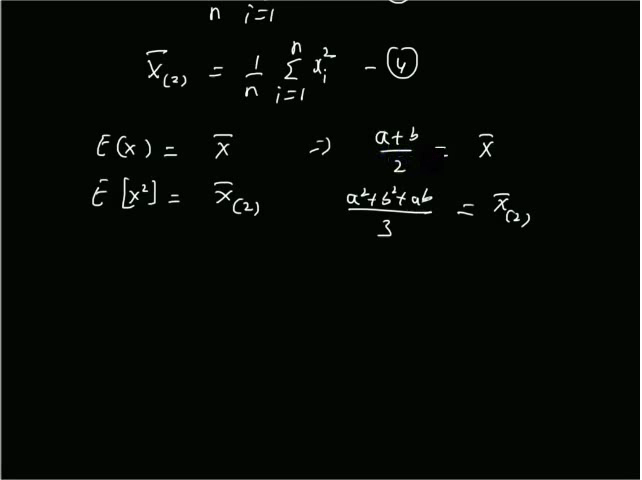 n i=1
x̄₍₂₎ = 1/n n∑i=1 xᵢ² - ④
E(x) = x̄ ⇒ a+b/2 = x̄
E[x²] = x̄₍₂₎ a²+b²+ab/3 = x̄₍₂₎